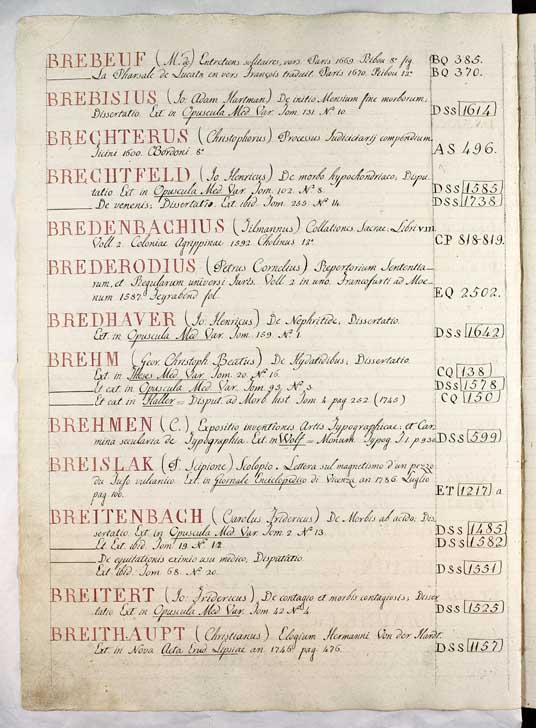 BREBEUF (M. de) Entretiens solitaires, vers. Paris 1669 Ribou 8° fig BQ 385.
La Pharsale de Lucain en vers François traduit. Paris 1670. Ribou 12° BQ 370.
BREBISIUS (Io. Adam Hartman) De initio Mensium sine morborum;
Dissertatio. Ext. in Opuscula Med Var. Tom 131. N° 10 DSS 1614
BRECHTERUS (Christophorus) Processus Judiciarij compendium.
Ticini 1600. Bordoni. 8° AS 496.
BRECHTFELD (Io Henricus) De morbo hypochondriaco; Dispu-
tatio Ext in Opuscula Med Var. Tom. 102. N° 8. DSS 1585
De venenis; Dissertatio. Ext. ibid. Tom. 255. N° 14 DSS 1738
BREDENBACHIUS (Tilmannus) Collationes Sacrae; Libri VIII.
Voll 2. Coloniae Agrippinae 1592 Cholinus 12° CP 818-819.
BREDERODIUS (Petrus Cornelius) Repertorium Sententia-
rum, et Regularum universi Juris. Voll 2 in uno. Francofurti ad Moe-
num 1587. Feyrabend fol EQ 2502.
BREDHAVER (Io: Henricus) De Nephritide; Dissertatio.
Ext. in Opuscula Med Var. Tom. 159. N° 1. DSS 1642
BREHM (Geor. Christoph. Beatus) De Hydatidibus; Dissertatio
Ext. in Theses Med Var. Tom. 20. N° 16. CQ 138
Et exst in Opuscula Med Var. Tom 95. N° 3 DSS 1578
Et exst. in Haller = Disput. ad Morb hist Tom 4 pag 252 (1745) CQ 150
BREHMEN (C.) Expositio inventionis Artis Typographicae; et Car-
mina secularia de Typographia. Ext in Wolf = Monum Typog T. 1. p 930 DSS 599
BREISLAK (P. Scipione) Scolopio. Lettera sul magnetismo d'un pezzo
di Tufo vulcanico. Ext. in Giornale Enciclopedico di Vicenza an 1786. Luglio
pag 106. ET 1217 a
BREITENBACH (Carolus Fridericus) De Morbis ab acido; Dis-
sertatio. Ext in Opuscula Med Var. Tom 2 N° 13. DSS 1485
Et Ext ibid. Tom 19 N° 12 DSS 1582
De equitationis eximio usu medico, Disputatio.
Ext ibid. Tom 68. N° 20. DSS 1551
BREITERT (Io: Fridericus) De contagio et morbis contagiosis; Disser
tatio Ext in Opuscula Med Var. Tom 42 N° 4 DSS 1525
BREITHAUPT (Christianus) Elogium Hermanni Von der Hardt.
Ext. in Nova Acta Erud Lipsiae an 1746. pag 476. DSS 1157